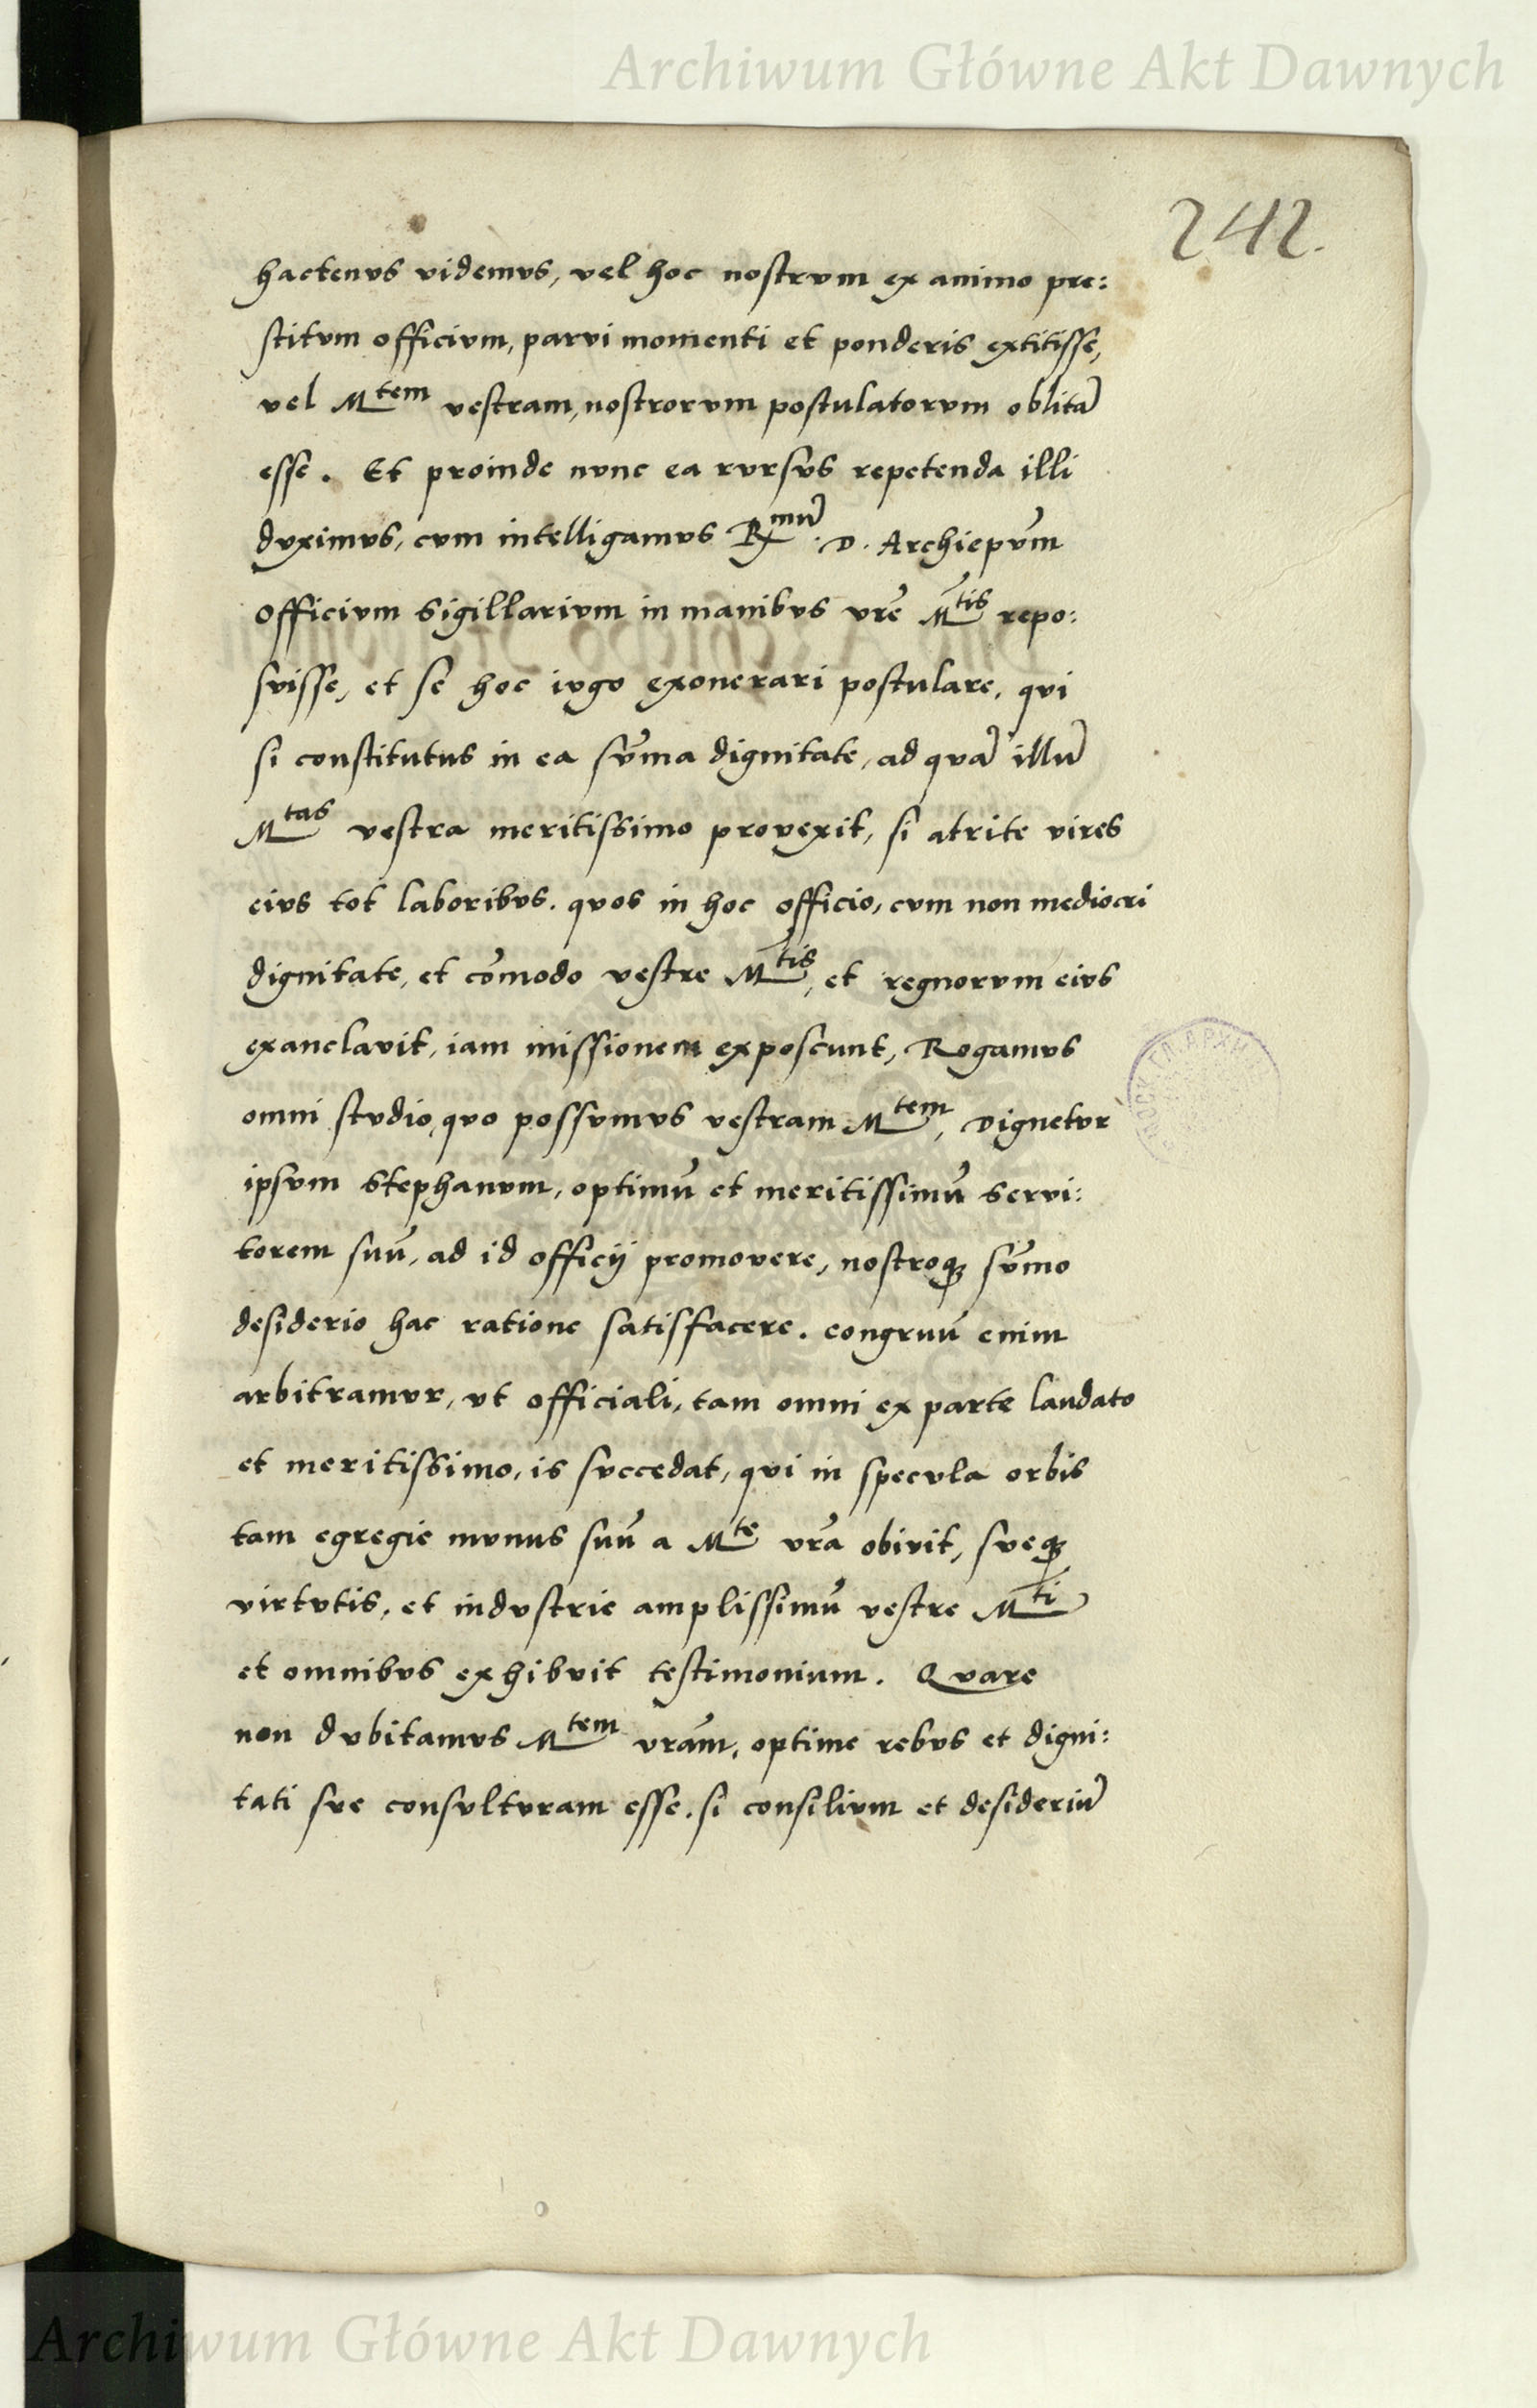 Archiwum Główne Akt Dawnych
242.
hactenvs videmvs, vel hoc nostrvm ex animo pre:
stitvm officivm, parvi momenti et ponderis extitisse,
vel Mtem vestram, nostrorvm postulatorvm oblitã
esse. Et proinde nvnc ea rvrsvs repetenda illi
dvximvs, cvm intelligamvs Rmũ. D. Archiepṽm
officivm sigillarivm in manibvs vr̃e Mtis repo:
svisse, et se hoc ivgo exonerari postulare, qvi
si constitutus in ea sṽma dignitate, ad qvã illũ
Mtas vestra meritissimo provexit, si atrite vires
eivs tot laboribvs. qvos in hoc officio, cvm non mediocri
dignitate, et cõmodo vestre Mtis, et regnorvm eivs
exanclavit, iam missionem exposcunt, Rogamvs
omni stvdio, qvo possvmvs vestram Mtem, Dignetvr
ipsvm Stephanvm, optimũ et meritissimũ servi:
torem suũ, ad id officij promovere, nostroqȝ sṽmo
desiderio hac ratione satisfacere. congruũ enim
arbitramvr, vt officiali, tam omni ex parte laudato
et meritissimo, is svccedat, qvi in specvla orbis
tam egregie mvnus suũ a Mte vr̃a obivit, sveqȝ
virtvtis, et indvstrie amplissimũ vestre Mti
et omnibvs exhibvit testimonium. Qvare
non dvbitamvs Mtem vrãm, optime rebvs et digni:
tati sve consvltvram esse. si consilivm et desideriũ
Archiwum Główne Akt Dawnych